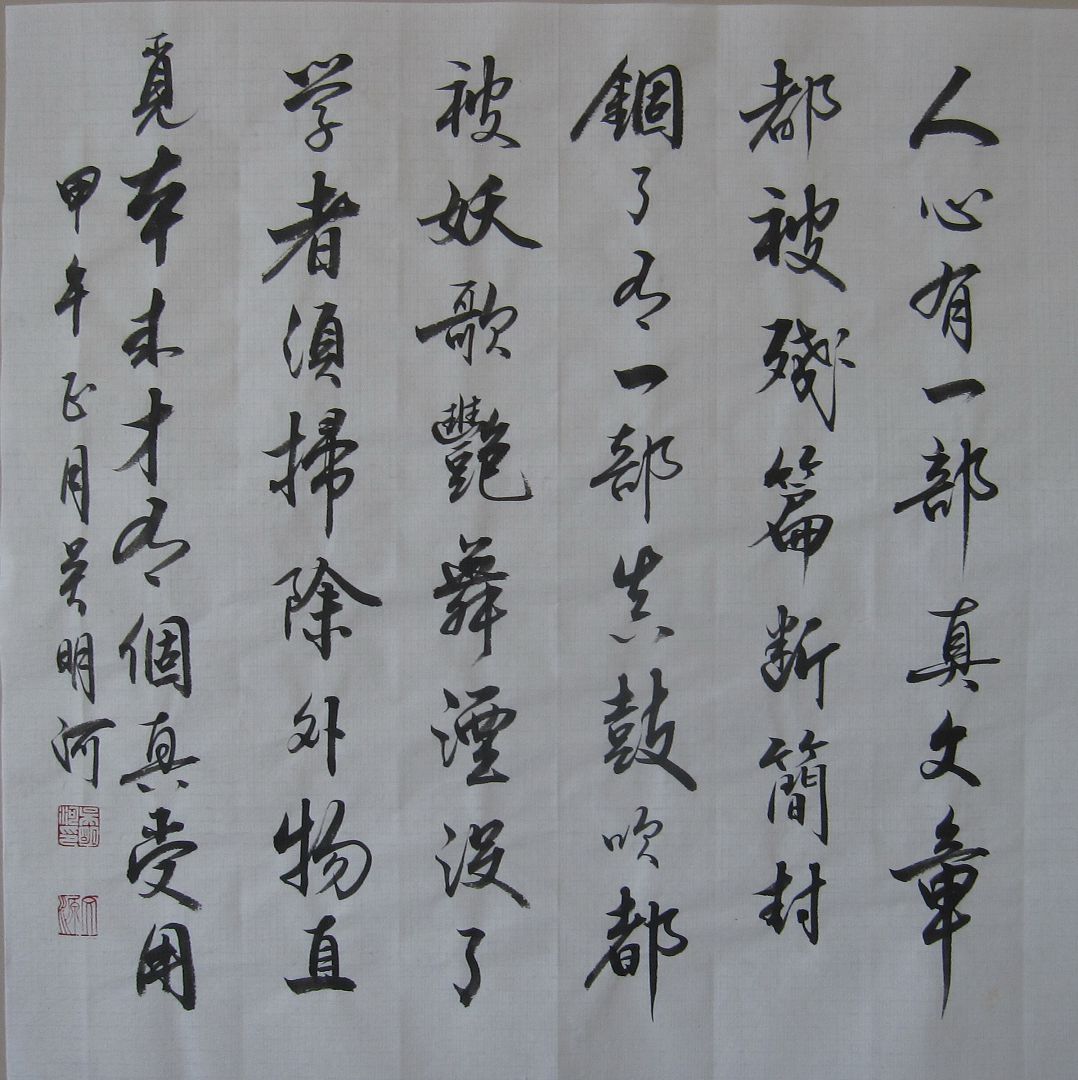 人心有一部真文章
都被殘篇断簡封
錮了有一部真鼓吹都
被妖歌艷舞湮没了
学者須掃除外物直
覓本来才有個真受用
甲午正月吴明河